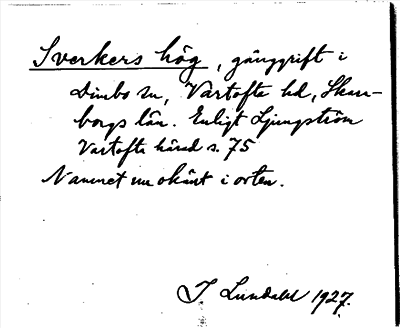 Sverkers hög, gånggrift i
Dimbo sn, Vartofte hd, Skara-
borgs län. Enligt Ljungström
Vartofte härad s. 75
Namnet nu okänt i orten.
I. Lundahl 1927.